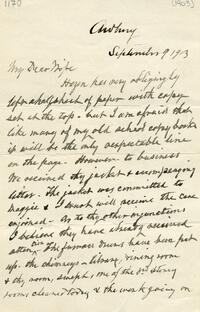 1170
(1903)
September 9 1913
My Dear Wife
Hogen has very obligingly
left a half sheet of paper with copy
set at the top - but I am afraid that
like many of my old school copy books
it will be the only respectable line
on the page. However to business.
We received thy jacket & accompanying
letter. The jacket was committed to
Maggie & I trust will receive the care
enjoined. As to thy other injunctions
I believe they have already received
attention. The furnace drums have been put
up. the chimneys - library, dining room
& thy room, swept, one of the 3rd story
rooms cleaned today & the work going on